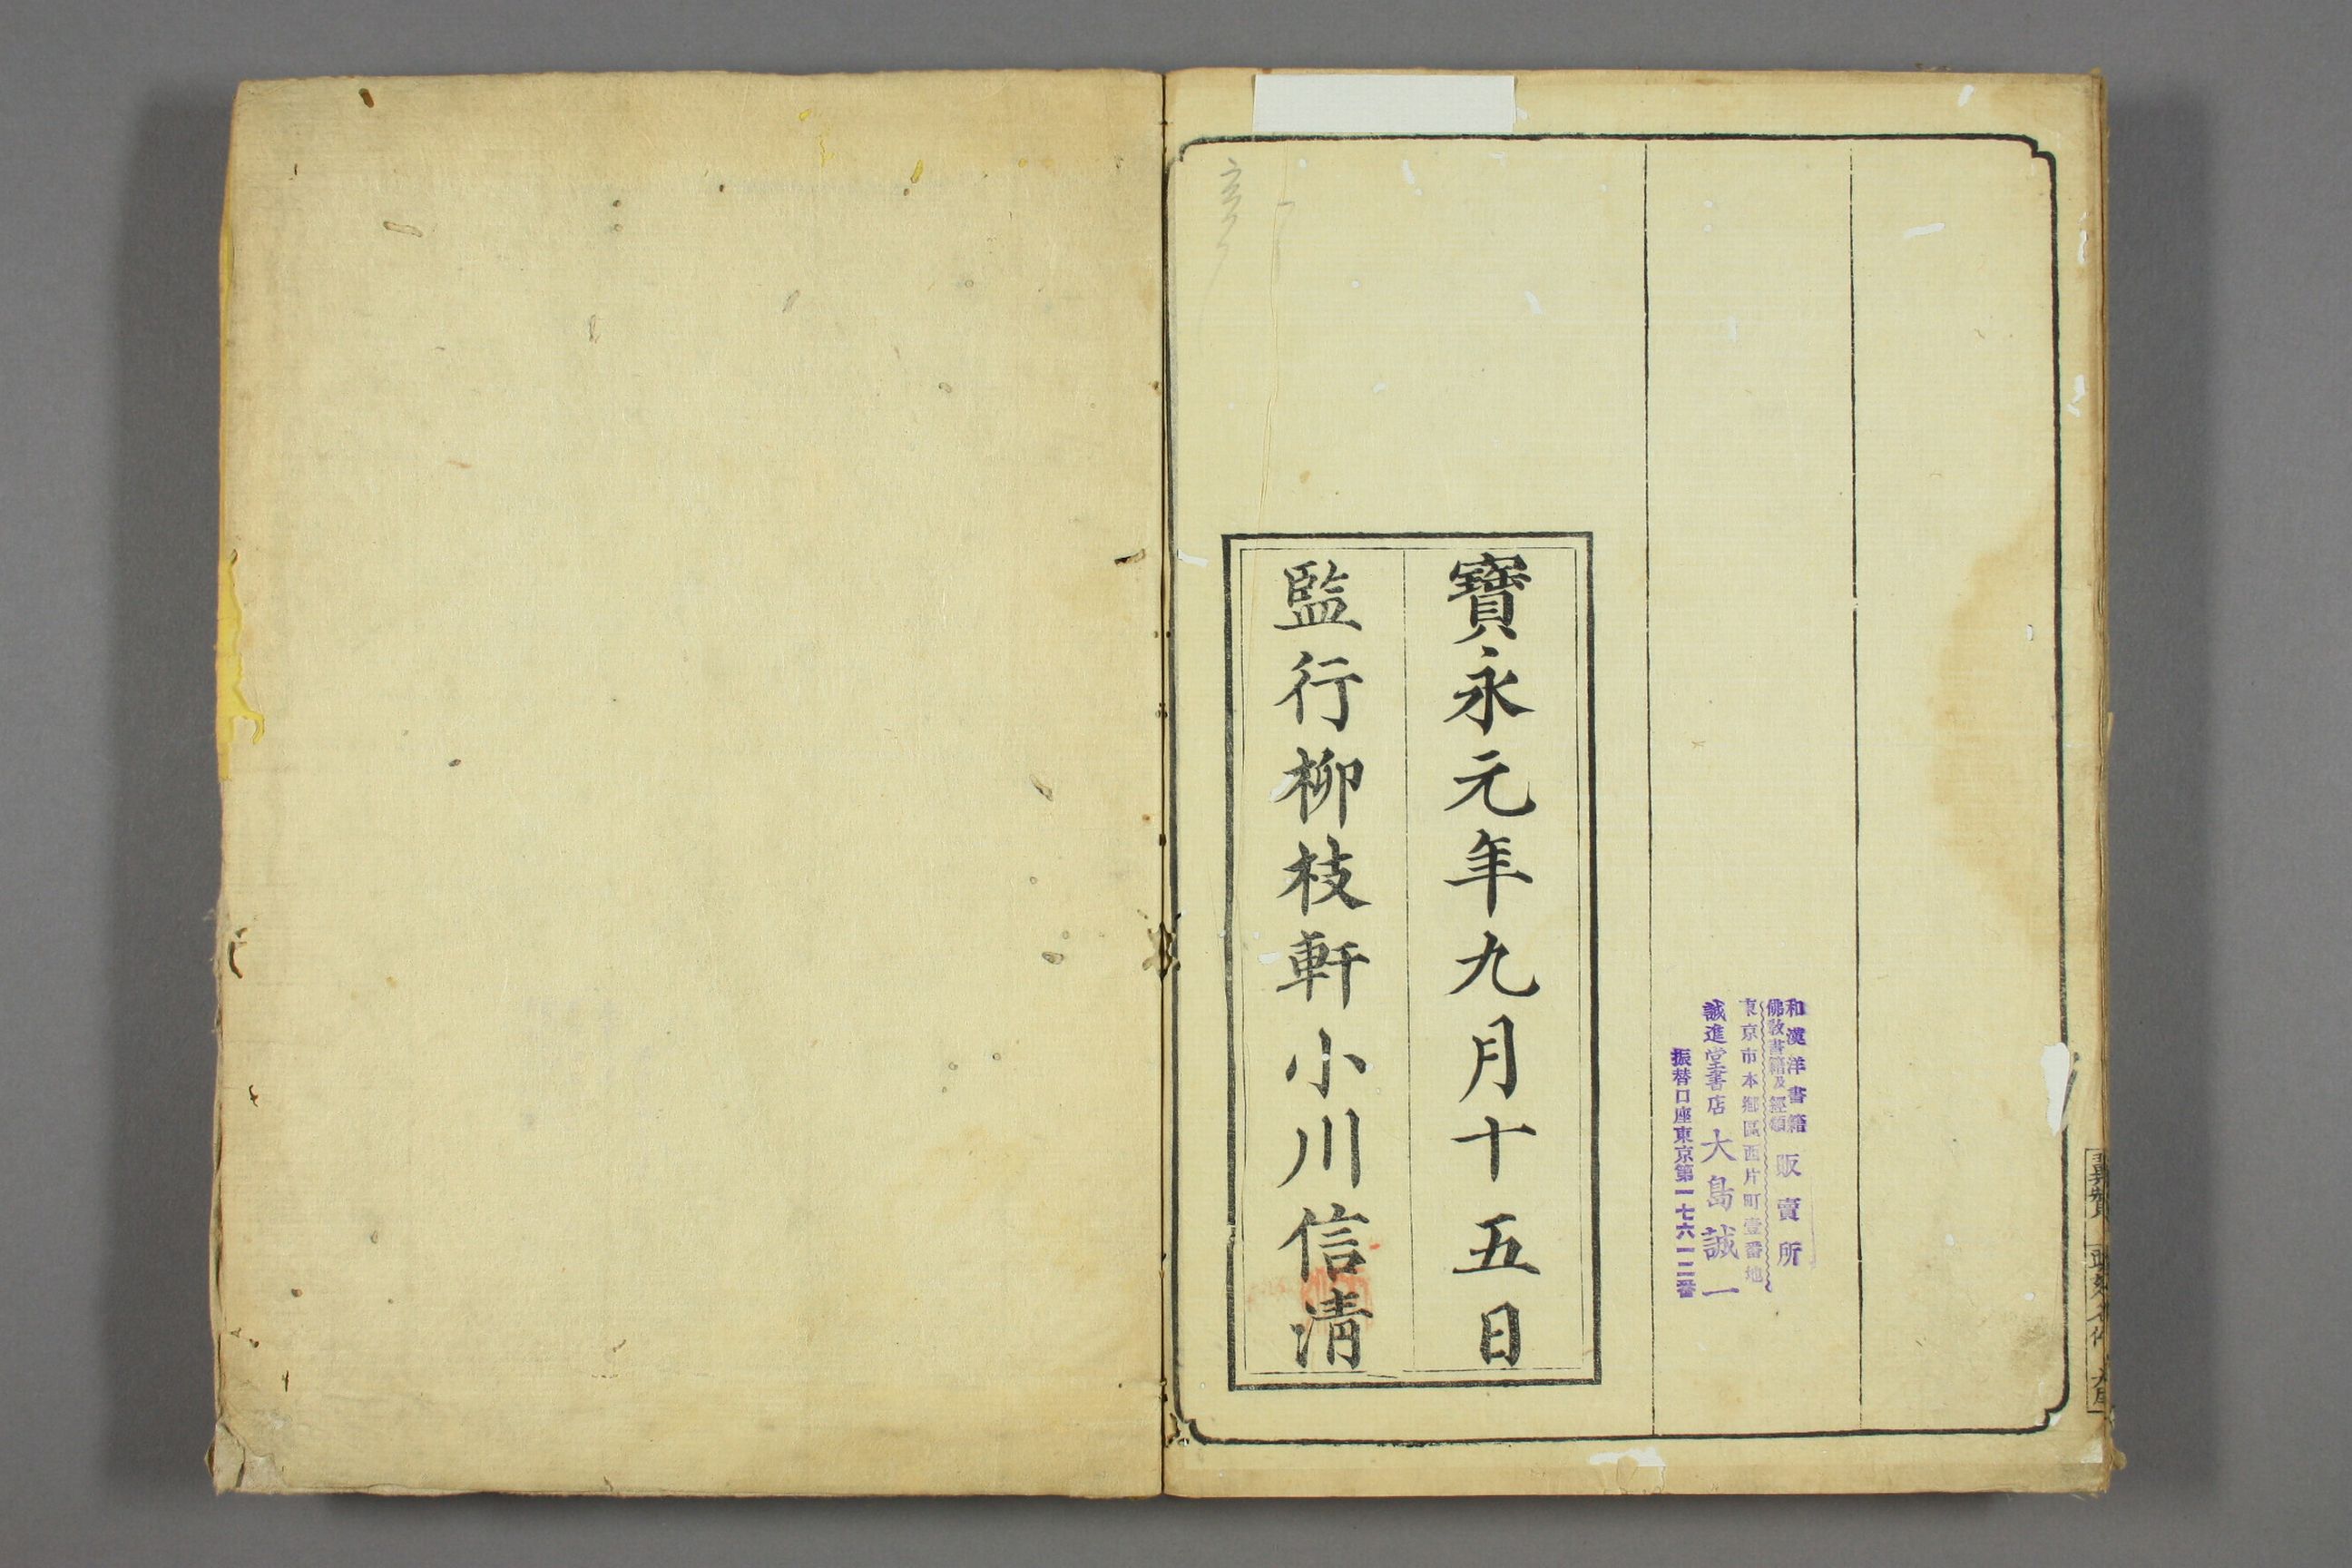 和漢洋書籍
佛敎書籍及經類
販賣所
東京市本鄕區西片町壹番地
誠進堂書店 大島誠一
振替口座東京第一七六一二番
寶永元年九月十五日
監行柳枝軒小川信清